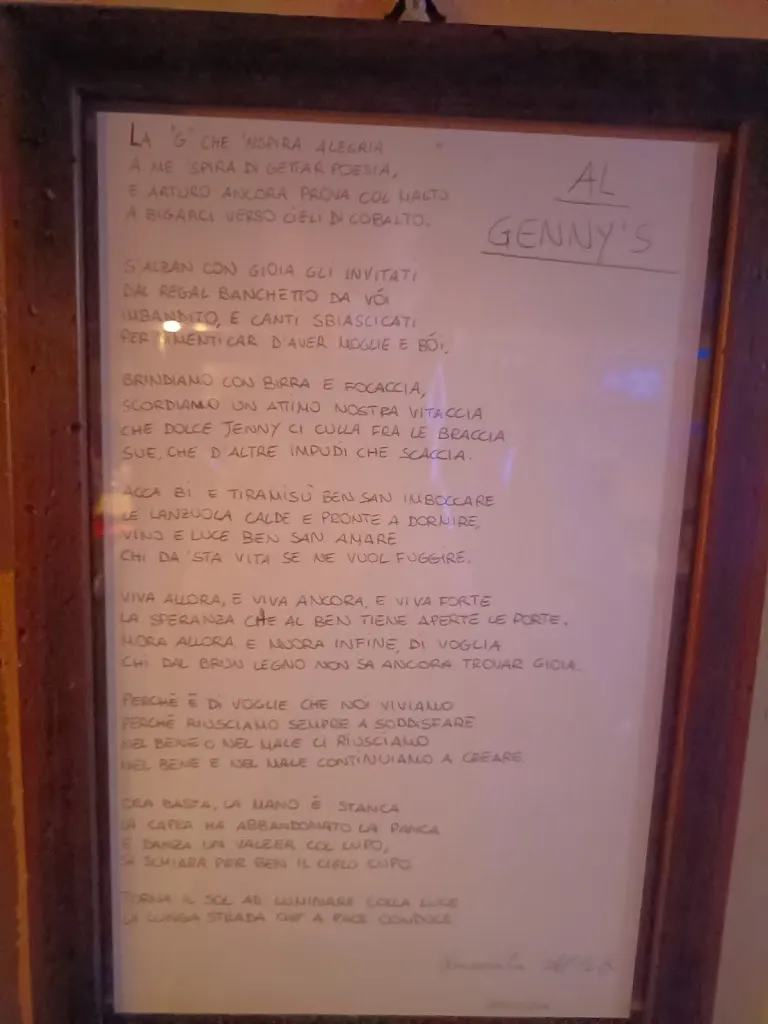 AL
GENNY'S
LA 'G' CHE 'NSPIRA ALEGRIA
A ME 'SPIRA DI GETTAR POESIA,
E ARTURO ANCORA PROVA COL MALTO
A BIGARCI VERSO CIELI DI COBALTO.
S'ALZAN CON GIOIA GLI INVITATI
DAL REGAL BANCHETTO DA VÓI
IMBANDITO, E CANTI SBIASCICATI
PER DIMENTICAR D'AVER MOGLIE E BÓI.
BRINDIAMO CON BIRRA E FOCACCIA,
SCORDIAMO UN ATTIMO NOSTRA VITACCIA
CHE DOLCE JENNY CI CULLA FRA LE BRACCIA
SUE, CHE D'ALTRE IMPUDI CHE SCACCIA.
ACCA BI E TIRAMISÙ BEN SAN IMBOCCARE
LE LANZUOLA CALDE E PRONTE A DORMIRE,
VINO E LUCE BEN SAN AMARE
CHI DA 'STA VITA SE NE VUOL FUGGIRE.
VIVA ALLORA, E VIVA ANCORA, E VIVA FORTE
LA SPERANZA CHE AL BEN TIENE APERTE LE PORTE.
MORA ALLORA E MUORA INFINE, DI VOGLIA
CHI DAL BRUN LEGNO NON SA ANCORA TROVAR GIOIA.
PERCHÈ È DI VOGLIE CHE NOI VIVIAMO
PERCHÈ RIUSCIAMO SEMPRE A SODDISFARE
NEL BENE O NEL MALE CI RIUSCIAMO
NEL BENE E NEL MALE CONTINUIAMO A CREARE.
ORA BASTA, LA MANO È STANCA
LA CAPRA HA ABBANDONATO LA PANCA
E DANZA UN VALZER COL LUPO,
SI SCHIARA PER BEN IL CIELO CUPO.
TORNA IL SOL AD LUMINARE COLLA LUCE
LA LUNGA STRADA CHE A PACE CONDUCE